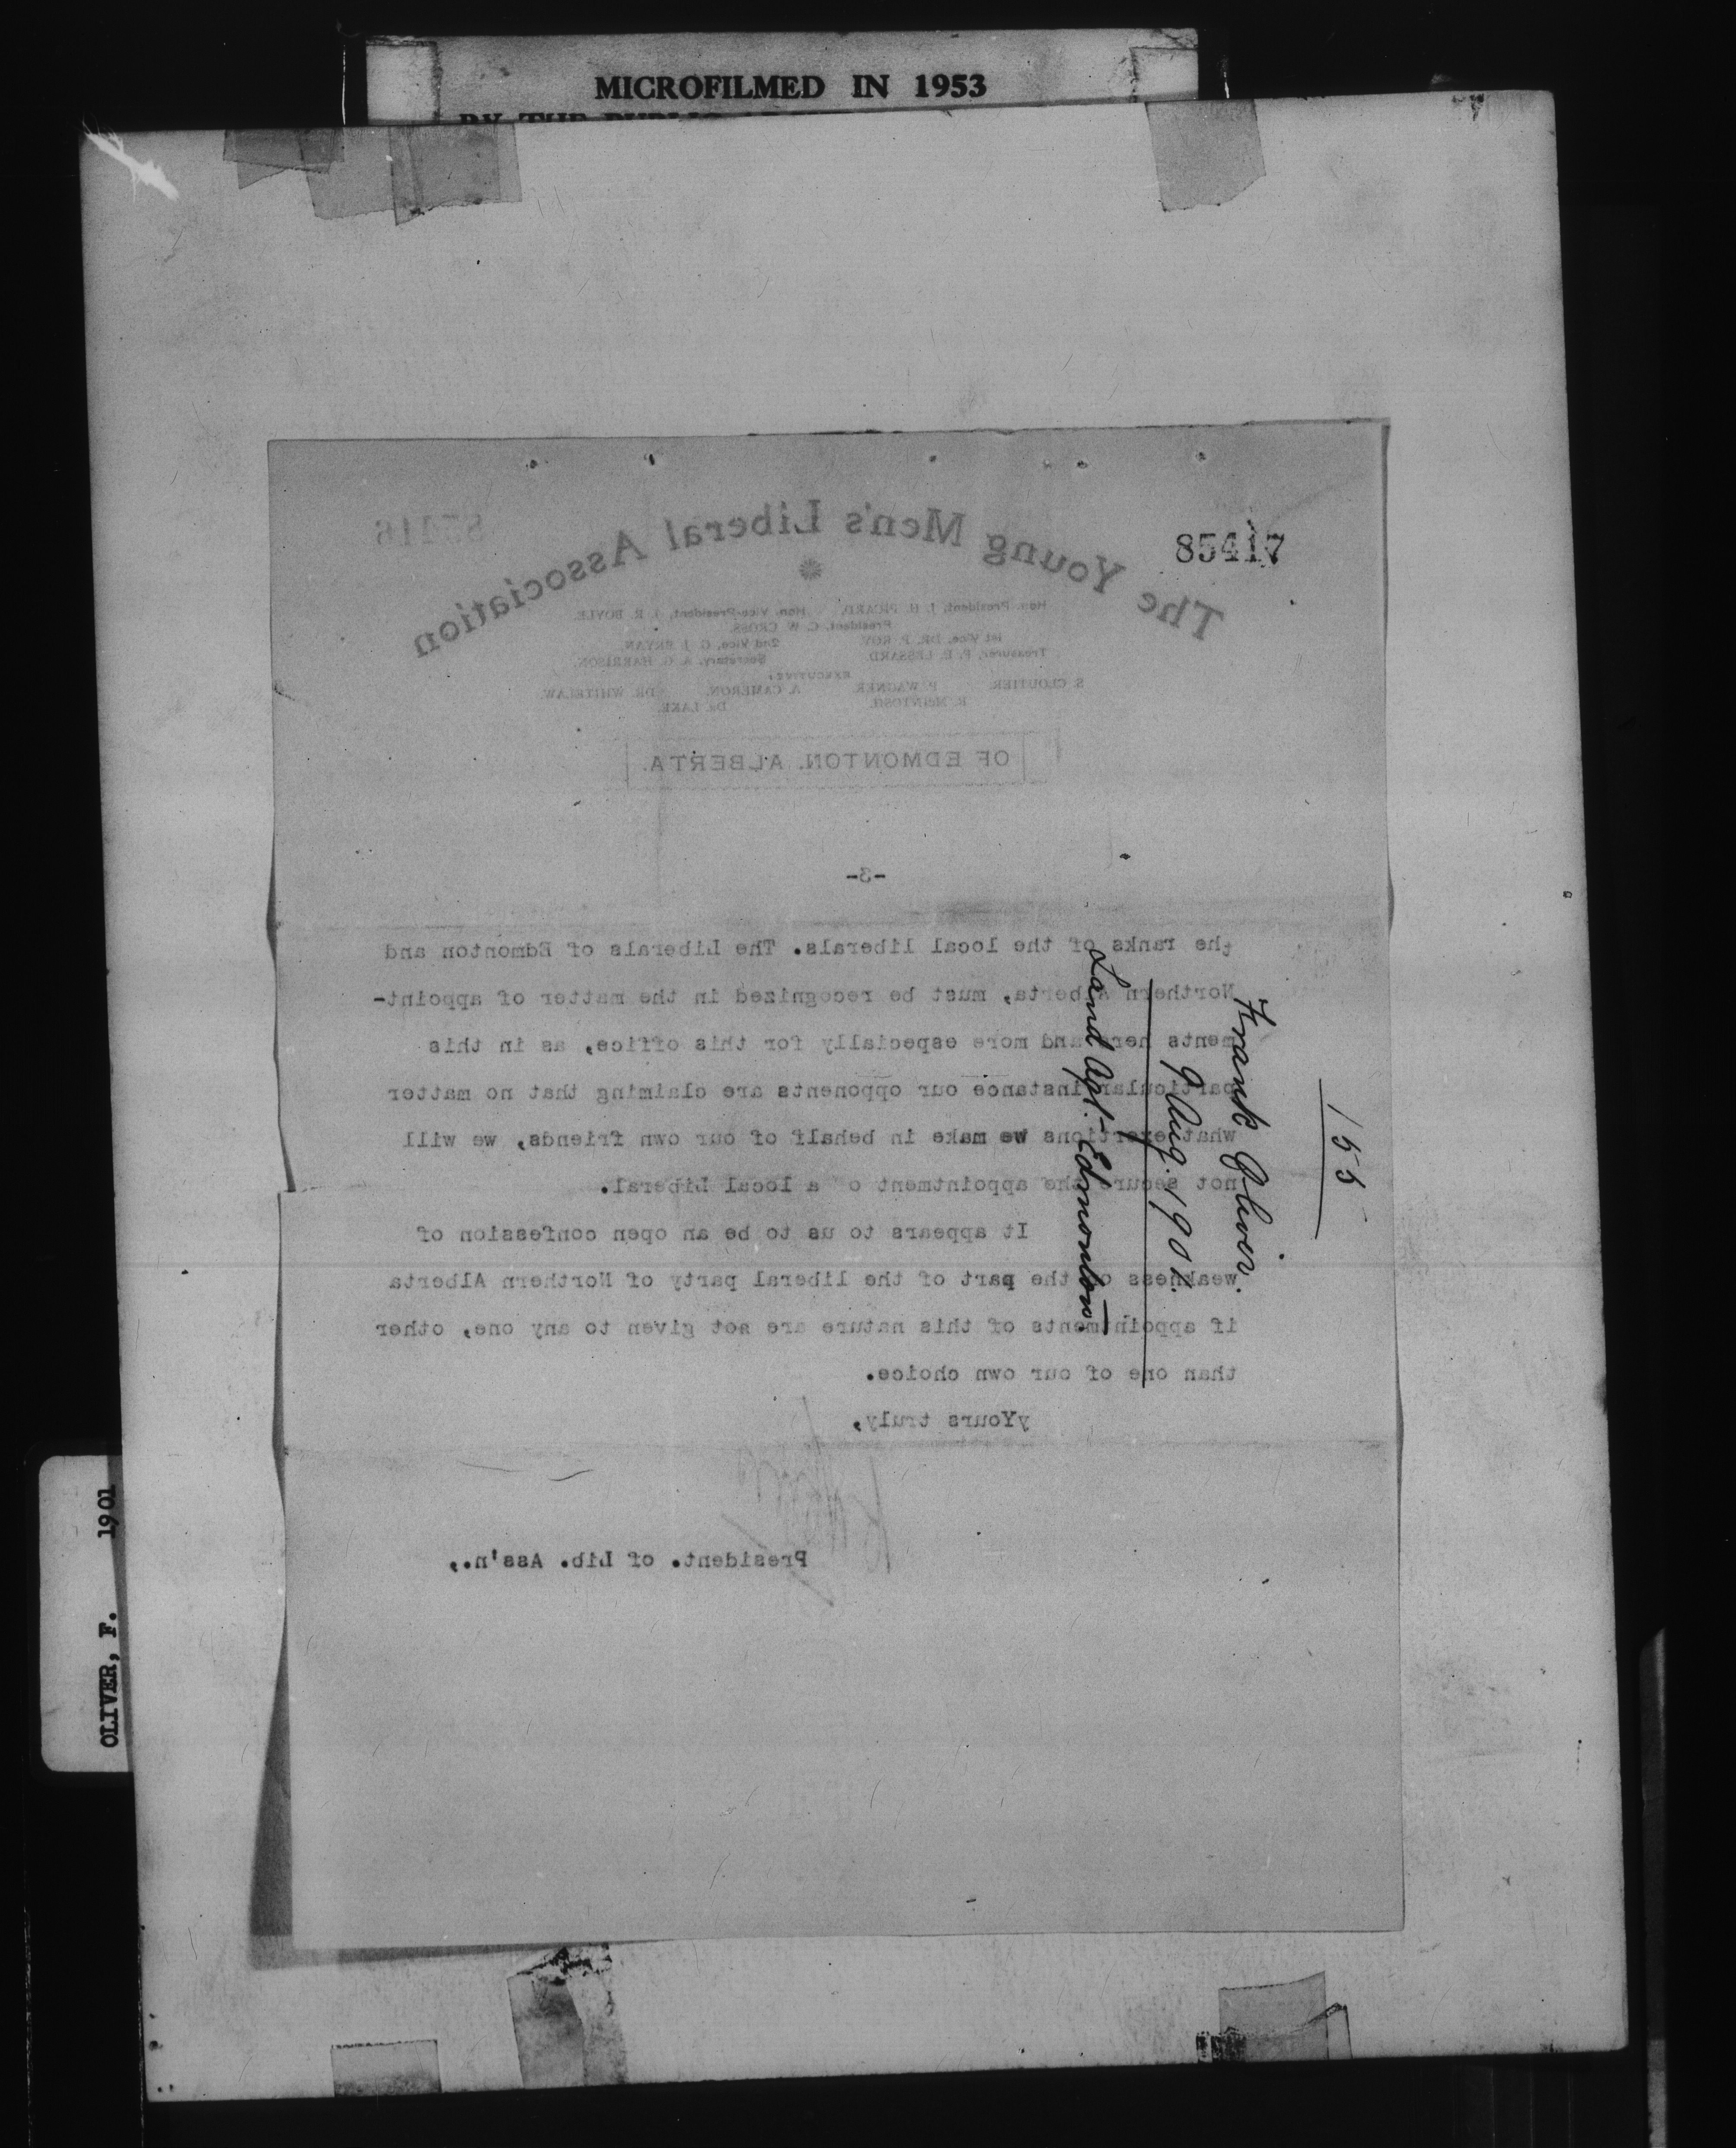 MICROFILMED IN 1953
85417
85416
The Young Men's Liberal Association
Hon. President, J. H. PICARD. Hon. Vice-President, J. R. BOYLE.
President, C. W. CROSS.
1st Vice, DR. P. ROY. 2nd Vice, G. J. BRYAN.
Treasurer, P. E. LESSARD. Secretary, A. G. HARRISON.
EXECUTIVE:
S. CLOUTIER. P. WAGNER. A. CAMERON. DR. WHITELAW.
R. McINTOSH. DR. LAKE.
OF EDMONTON, ALBERTA.
-3-
the ranks of the local liberals. The Liberals of Edmonton and
Northern Alberta, must be recognized in the matter of appoint-
ments here and more especially for this office, as in this
particular instance our opponents are claiming that no matter
what exertions we make in behalf of our own friends, we will
not secure the appointment o a local Liberal.
It appears to us to be an open confession of
weakness o the part of the liberal party of Northern Alberta
if appointments of this nature are not given to any one, other
than one of our own choice.
yYours truly,
President. of Lib. Ass'n.,
155
Frank Oliver.
9 Aug. 1901.
Land Agt. Edmonton.
OLIVER, F. 1901